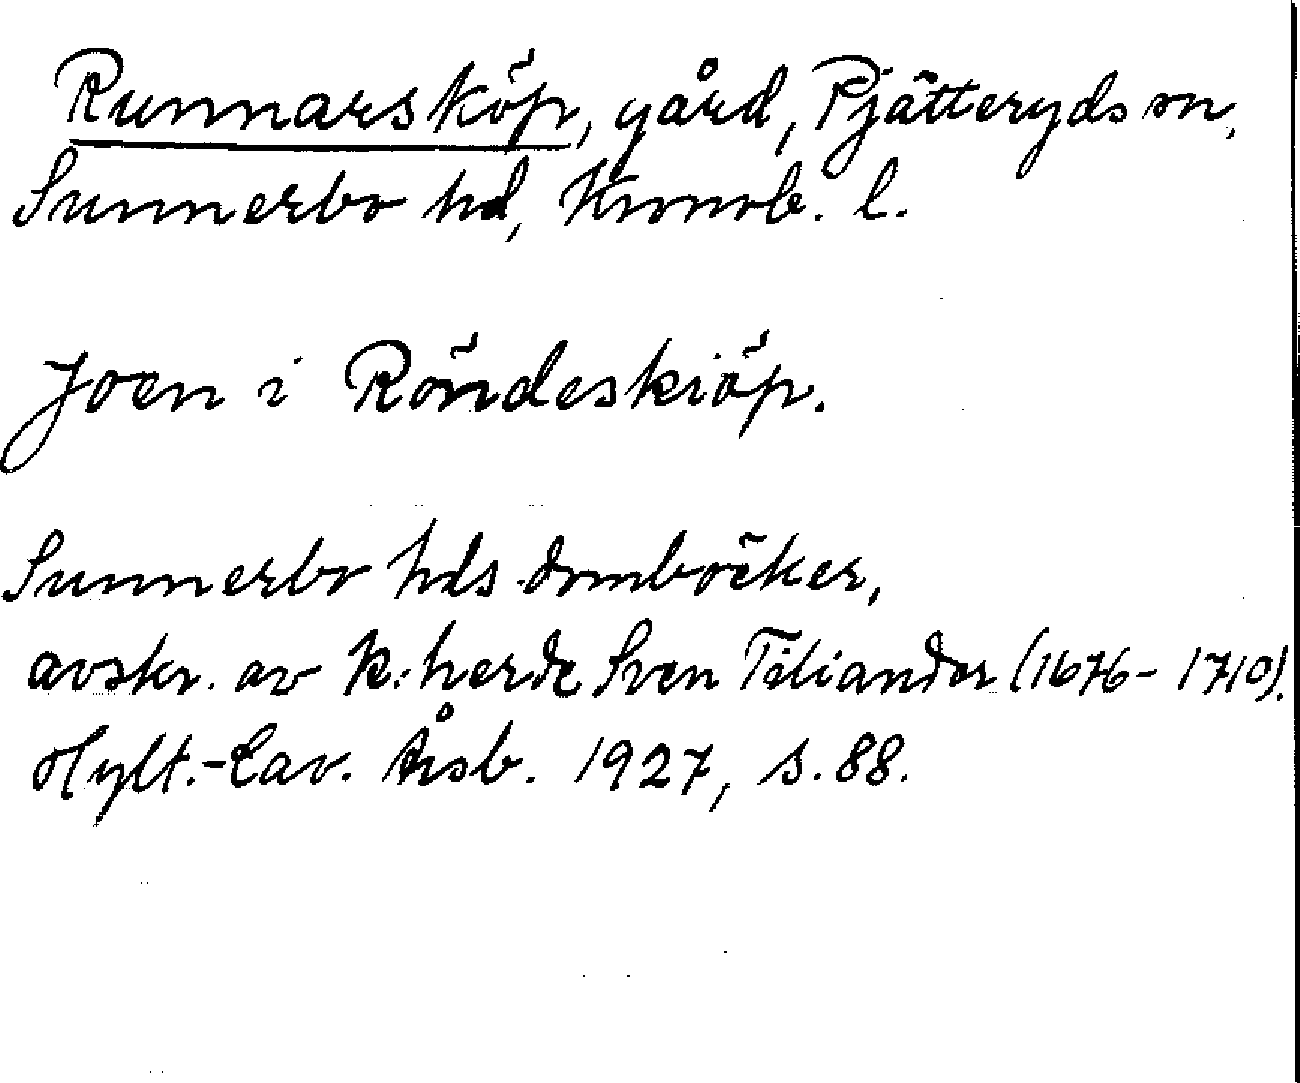 Runnarsköp, gård, Pjätteryds sn,
Sunnerbo hd, Kronob. l.
Joen i Röndeskiöp.
Sunnerbo hds domböcker,
avskr. av k.herde Sven Tiliander (1676-1710).
Hylt.-Cav. Årsb. 1927, s. 88.